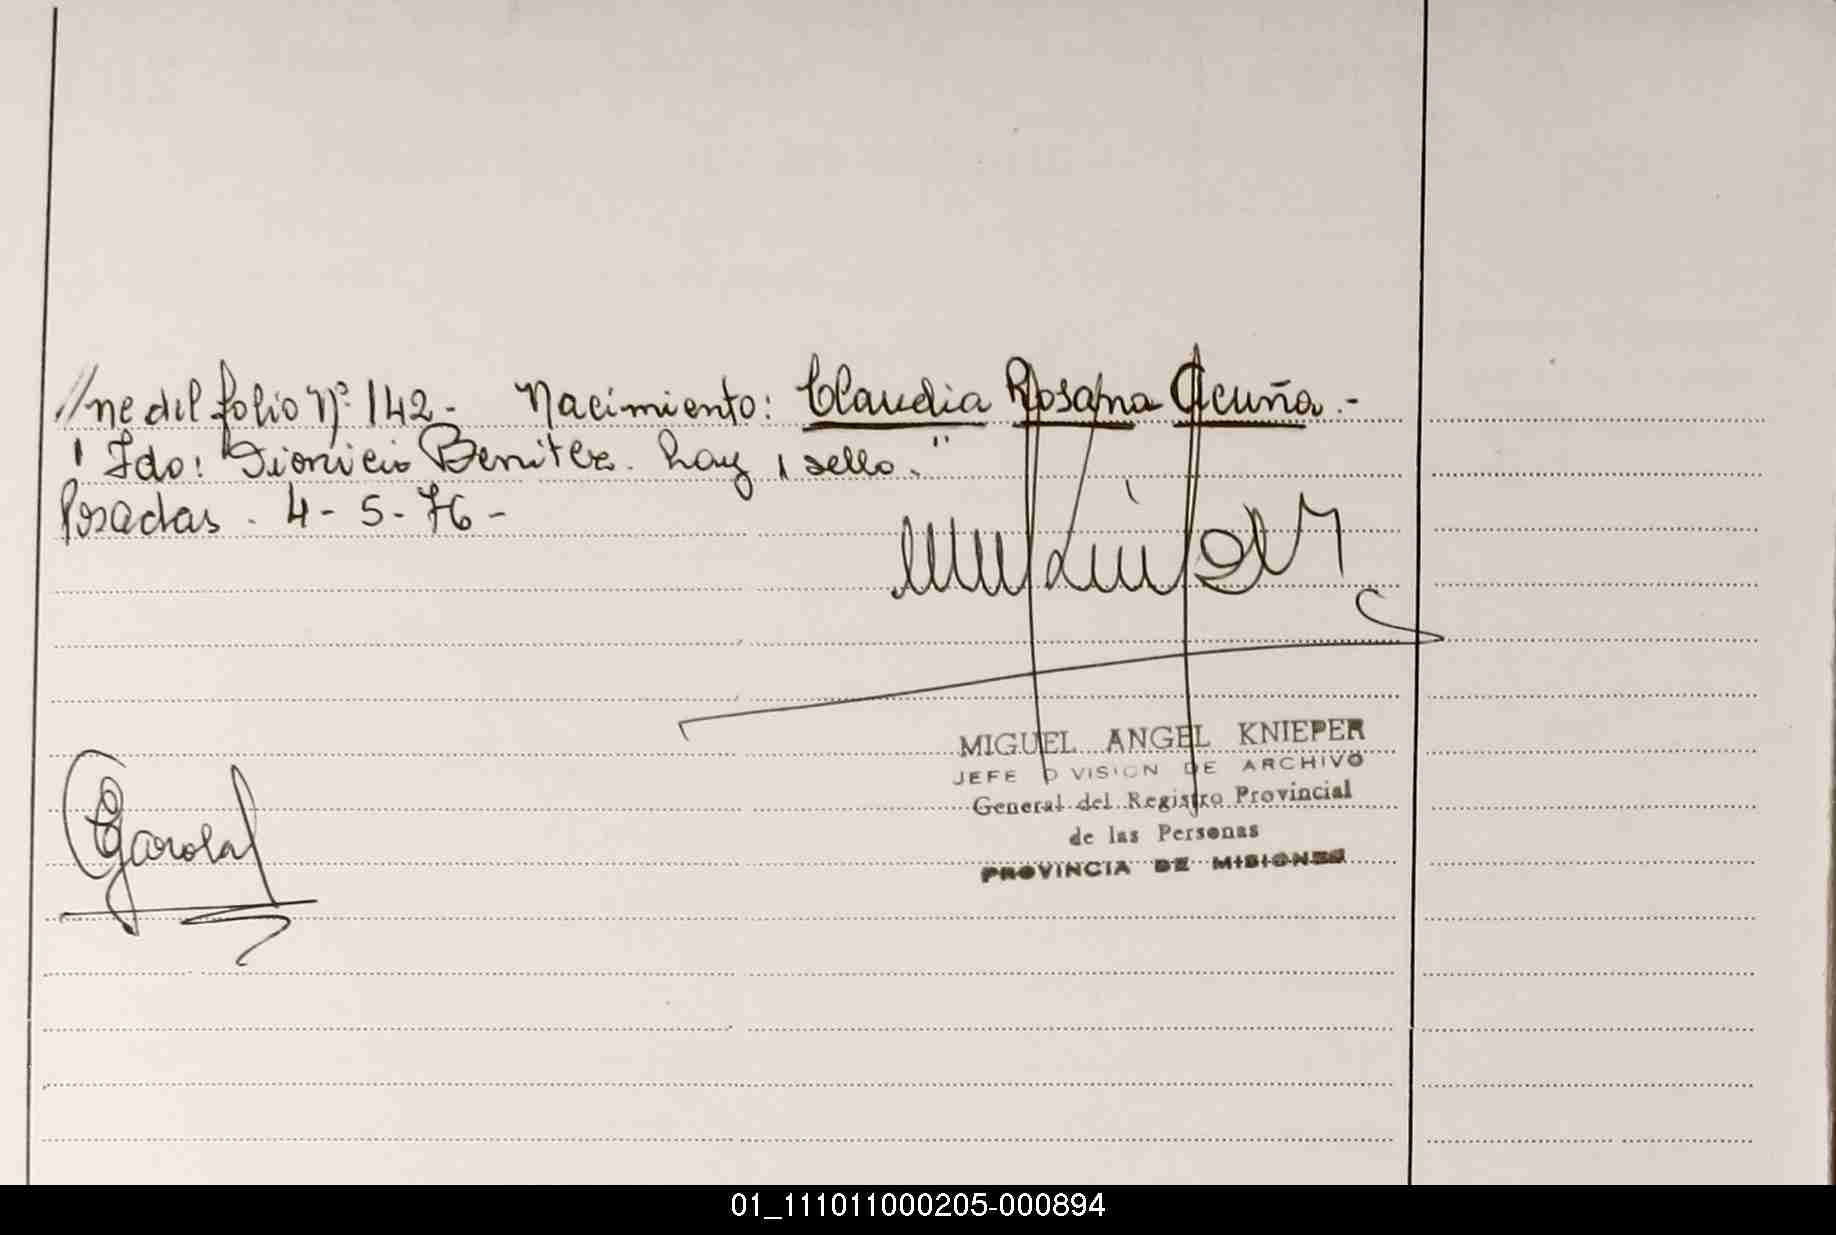 //ne del folio Nº 142- Nacimiento: Claudia Rosana Acuña.-
"Fdo: Dionicio Benitez. hay 1 sello."
Posadas. 4-5-76-
MIGUEL ANGEL KNIEPER
JEFE DIVISION DE ARCHIVO
General del Registro Provincial
de las Personas
PROVINCIA DE MISIONES
01_111011000205-000894